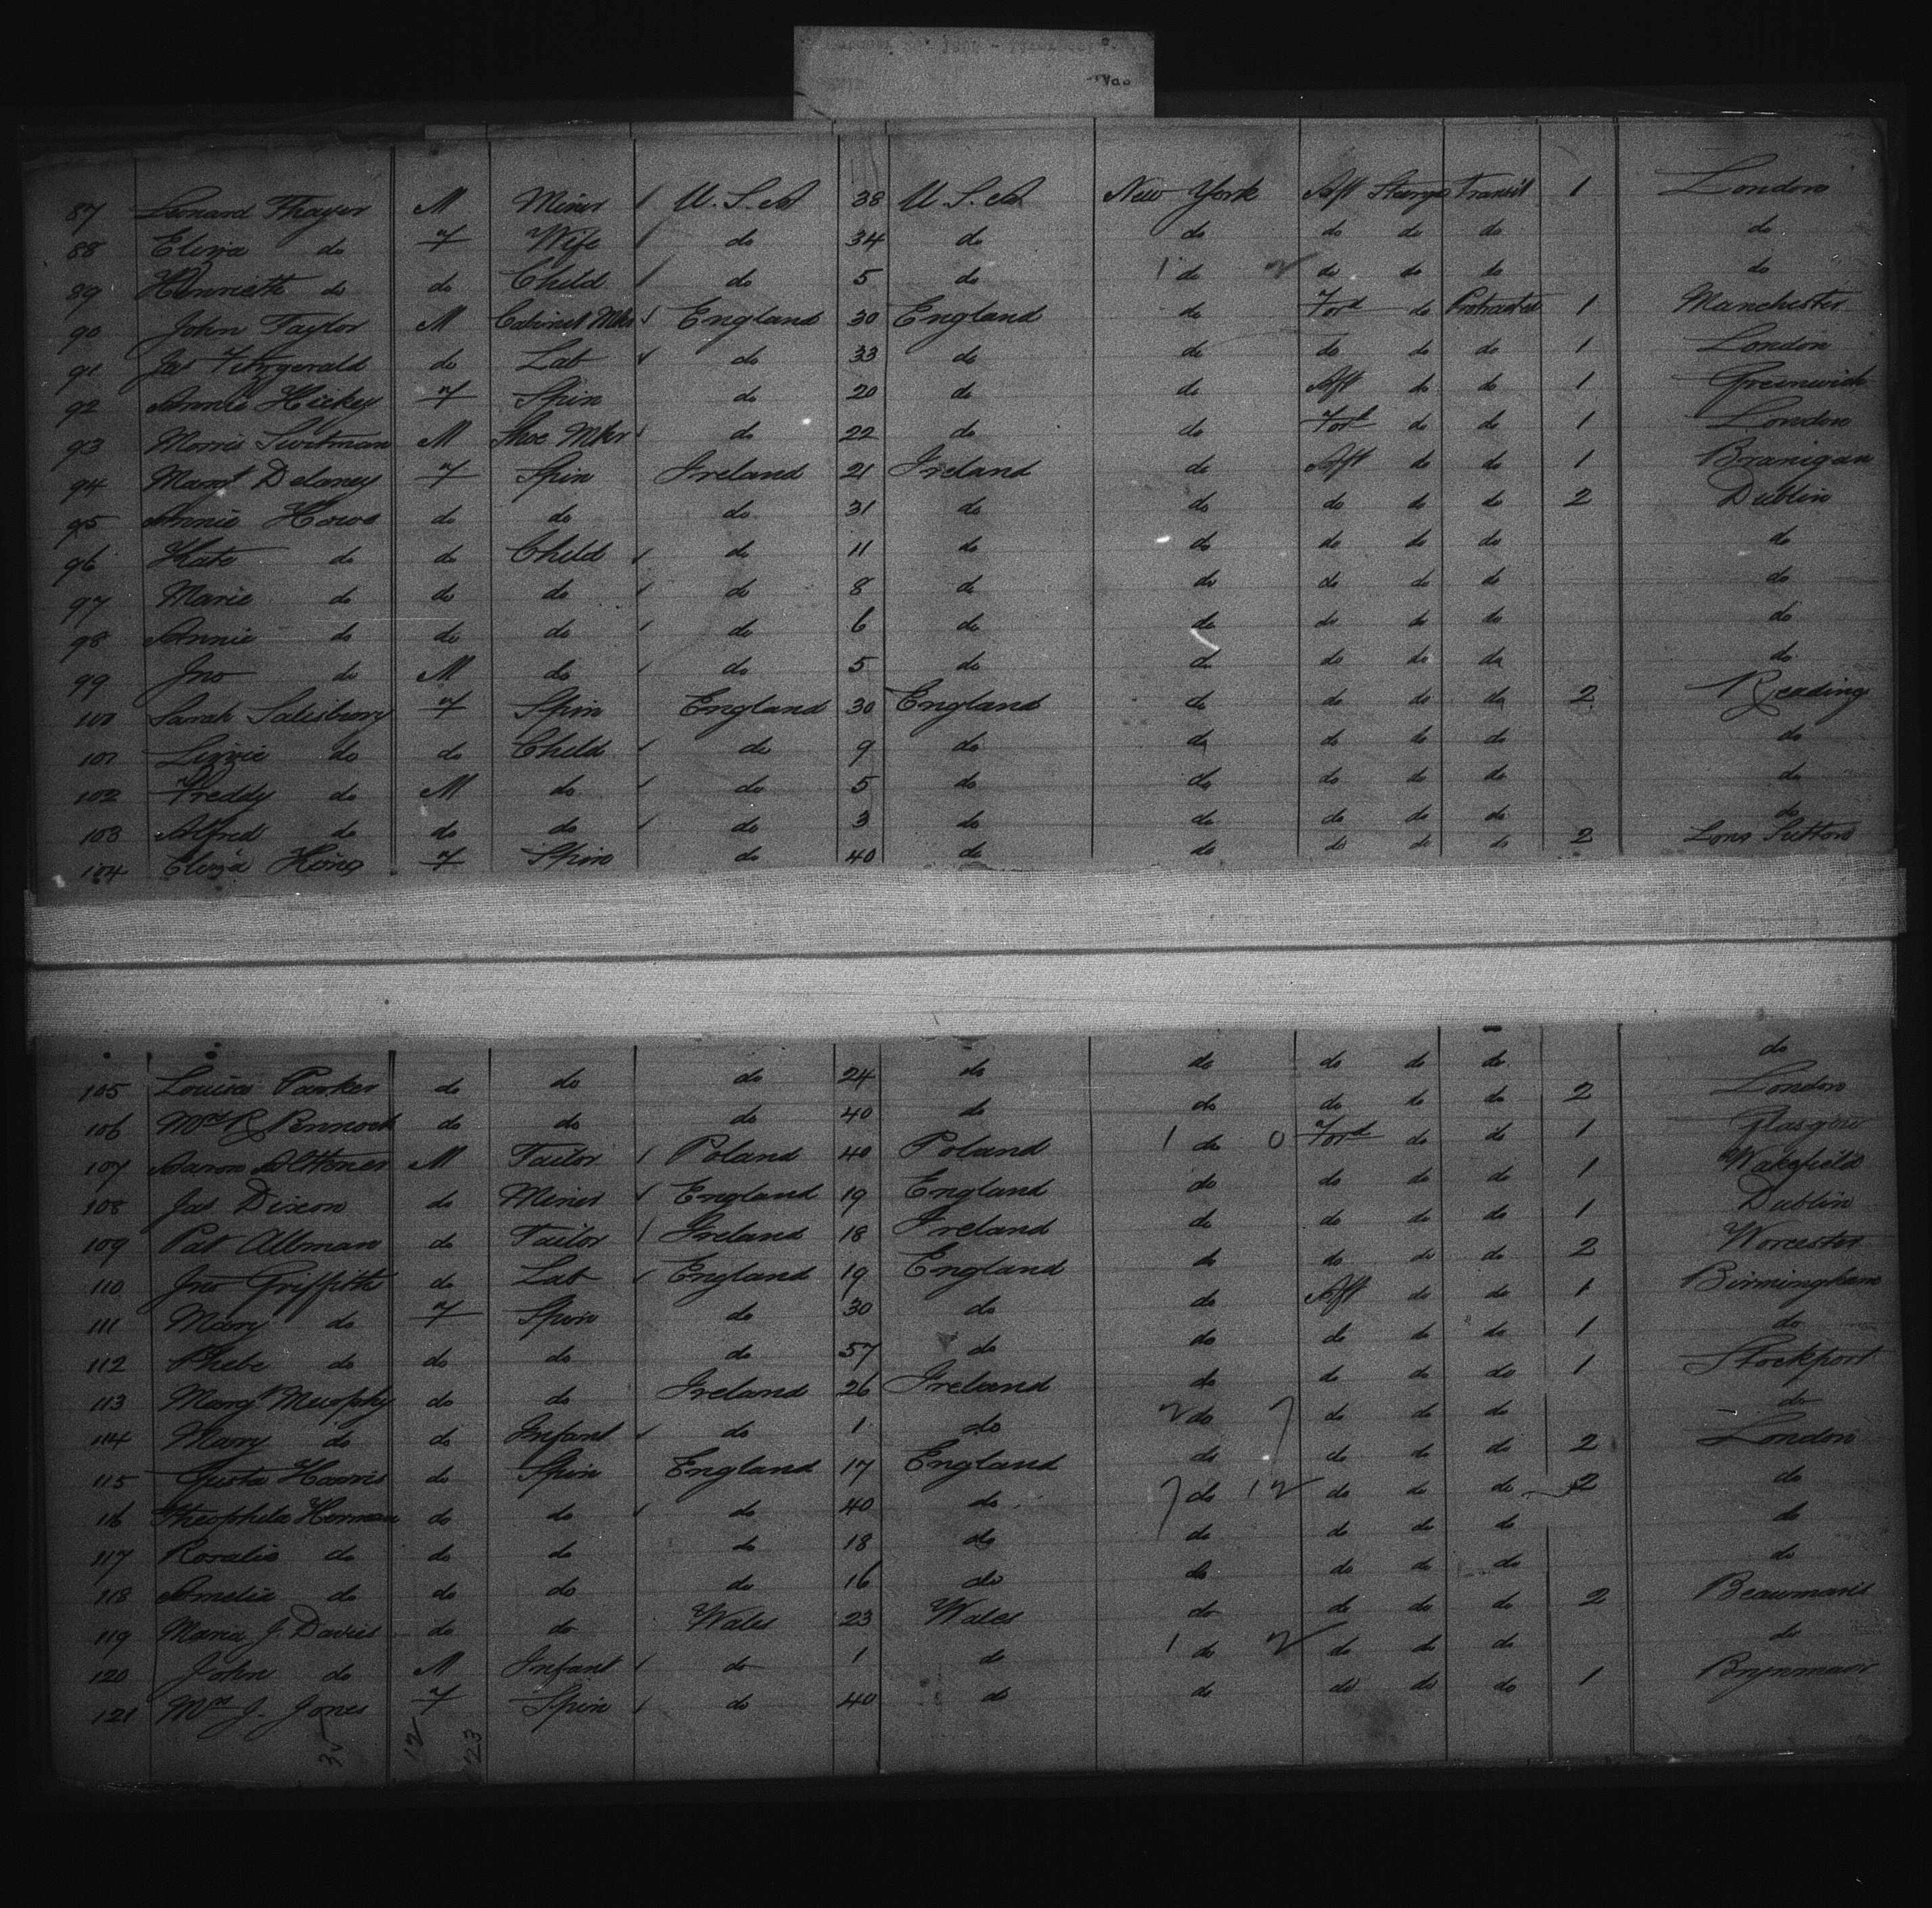 87 Leonard Thayer M Miner U.S.A 38 U.S.A New York Aft Steerge Transit 1 London
88 Eliza do F Wife do 34 do do do do do do
89 Henrietta do do Child do 5 do 1 do 2 do do do do
90 John Taylor M Cabinet Mkr England 30 England do Ford do Protracted 1 Manchester
91 Jas Fitzgerald do Lab do 33 do do do do do 1 London
92 Annie Hickey F Spin do 20 do do Aft do do 1 Greenwich
93 Morris M Shoe Mkr do 22 do do Ford do do 1 London
94 Margt Delaney F Spin Ireland 21 Ireland do Aft do do 1 Branigan
95 Annie Howe do do do 31 do do do do do 2 Dublin
96 Kate do do Child do 11 do do do do do do
97 Marie do do do do 8 do do do do do do
98 Annie do do do do 6 do do do do do do
99 Jno do M do do 5 do do do do do do
100 Sarah Salisbury F Spin England 30 England do do do do 2 Reading
101 Lizzie do do Child do 9 do do do do do do
102 Freddy do M do do 5 do do do do do do
103 Alfred do do do do 3 do do do do do do
104 Eliza King F Spin do 40 do do do do do 2 Long Sutton
105 Louisa Parker do do do 24 do do do do do do
106 Mrs R Pennock do do do 40 do do do do do 2 London
107 Aaron M Tailor Poland 40 Poland 1 do 0 Ford do do 1 Glasgow
108 Jas Dixon do Miner England 19 England do do do do 1 Wakefield
109 Pat Altman do Tailor Ireland 18 Ireland do do do do 1 Dublin
110 Jno Griffith do Lab England 19 England do do do do 2 Worcester
111 Mary do F Spin do 30 do do Aft do do 1 Birmingham
112 Phebe do do do do 57 do do do do do 1 do
113 Margt Murphy do do Ireland 26 Ireland do do do do 1 Stockport
114 Mary do do Infant do 1 do 2 do 7 do do do do
115 Harris do Spin England 17 England do do do do 2 London
116 Theophila Herman do do do 40 do 7 do 12 do do do 2 do
117 Rosalie do do do do 18 do do do do do do
118 Amelia do do do do 16 do do do do do do
119 Maria J. Davies do do Wales 23 Wales do do do do 2 Beaumaris
120 John do M Infant do 1 do 1 do 2 do do do do
121 Mrs J. Jones F Spin do 40 do do do do do 1 Brynmawr
35 12 23